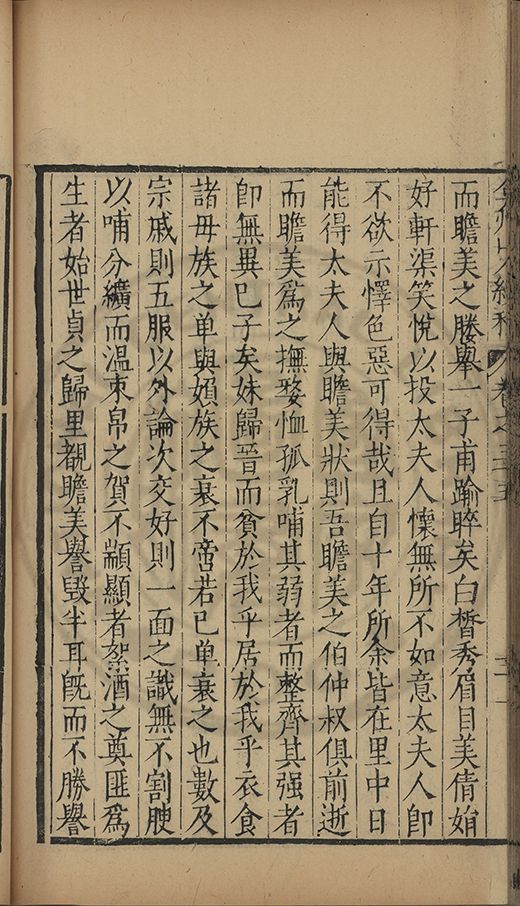 而瞻美之媵舉一子甫踰晬矣白皙秀眉目美倩姢
好軒渠笑悅以投太夫人懷無所不如意太夫人卽
不欲示懌色惡可得哉且自十年所余皆在里中日
能得太夫人與瞻美狀則吾瞻美之伯仲叔俱前逝
而瞻美爲之撫嫠恤孤乳哺其弱者而整齊其强者
卽無異已子矣妹歸晉而貧於我乎居於我乎衣食
諸毋族之单與嬪族之衰不啻若已单衰之也數及
宗戚則五服以外論次交好則一面之識無不割腴
以哺分纊而温束帛之賀不顓顯者絮酒之奠匪爲
生者始世貞之歸里覩瞻美譽毀半耳旣而不勝譽